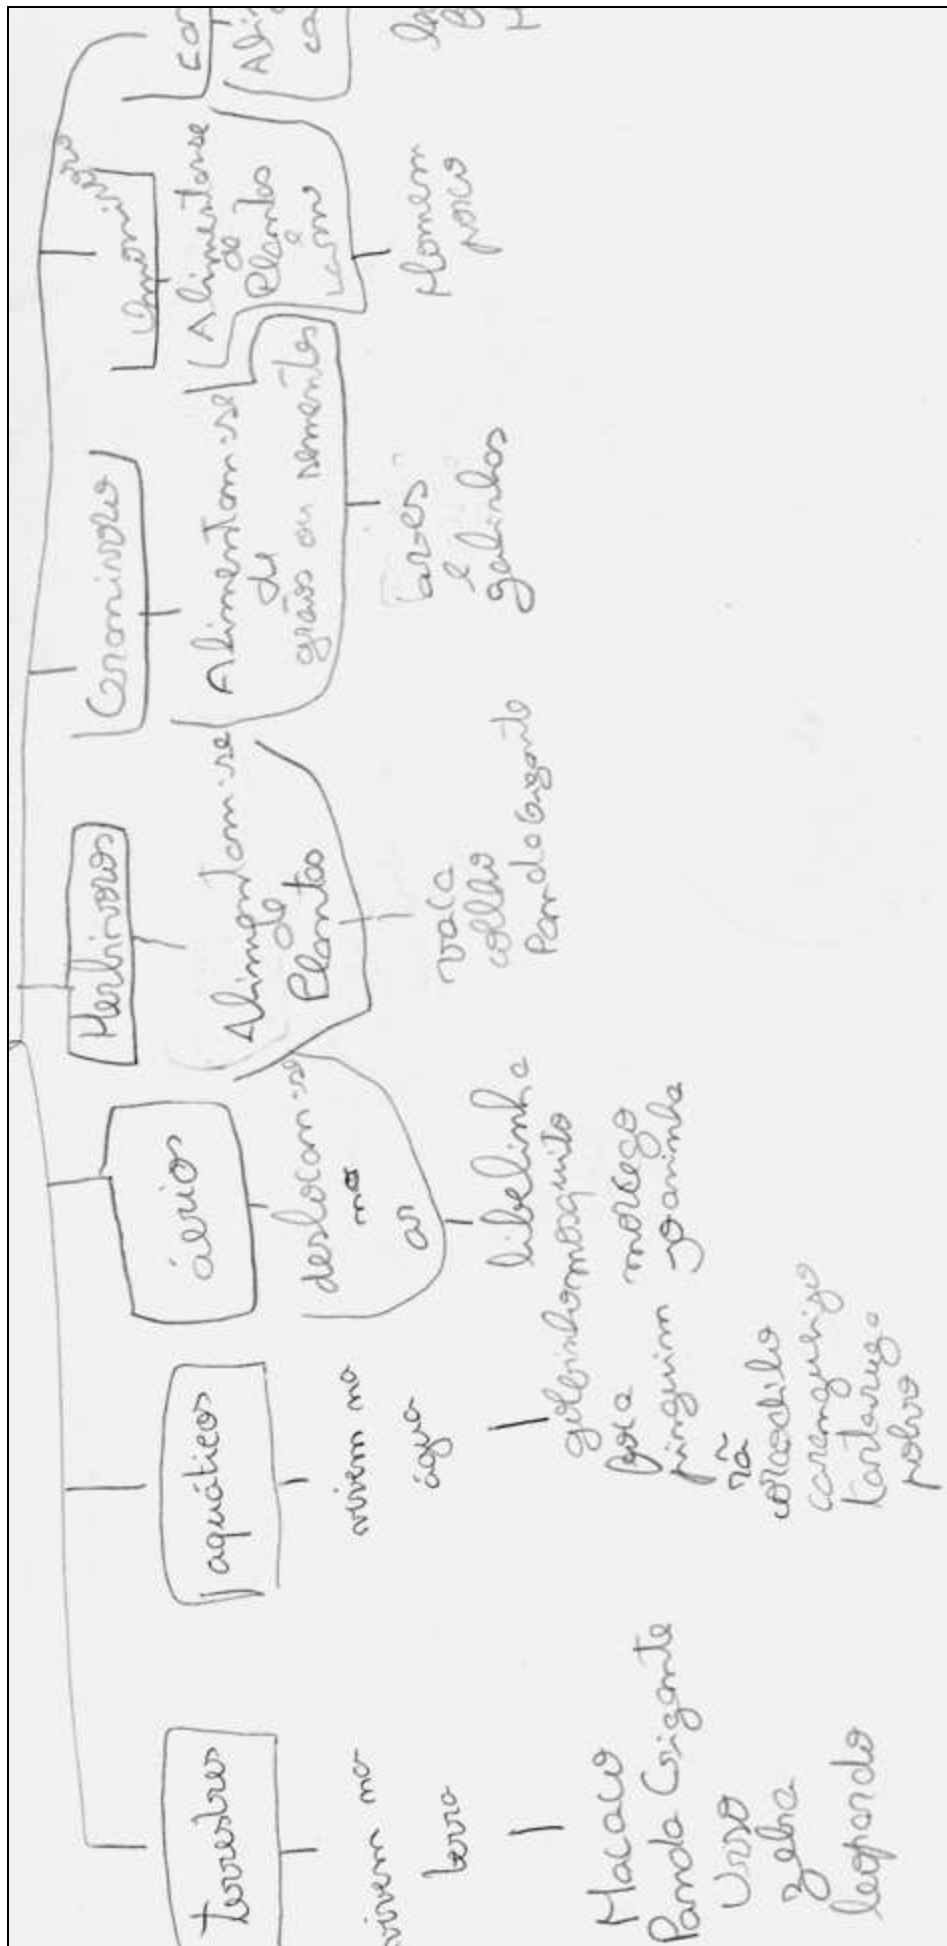 Terrestres
vivem na
terra
Macaco
Panda Gigante
Urso
zebra
leopardo
aquáticos
vivem na
água
golfinho
foca
pinguim
rã
crocodilo
carangueijo
tartaruga
polvo
áerios
deslocam-se
no
ar
libelinha
mosquito
morcego
joaninha
Herbivoros
Alimentam-se
de
Plantas
vaca
Panda Gigante
Alimentam-se
de
grãos ou sementes
aves
e
galinhas
Alimentam-se
de
Plantas
e
carne
Homem
porco